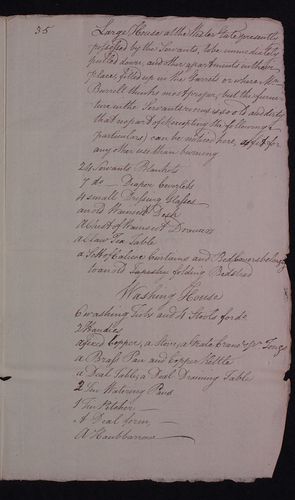 35
Large House at the Water Gate presently
possessed by the Servants, to be immediately
pulled down, and other apartments in their
place, fitted up in the Garrets or where Mr
Burrell thinks most proper, but the furni-
ture in the Servants rooms is so old and dirty
that no part of it (excepting the following
particulars) can be noticed here, as fit for
any other use than burning
24 Servants Blankets
7 do — Diaper Coverlids
4 small Dressing Glasses
an old Wainscot Desk
A Chest of Wainscot Drawers
a Claw Tea Table
a Sett of Calicoe Curtains and Bed bases belongg
to an old Tapestry folding Bedstead
Washing House
6 washing Tubs and 4 Stools for do
2 Handies
a fixed Copper, a Stove, a Grate Crane & pr Tongs
a Brass Pan and Copper Kettle
a Deal Table, a Deal Draining Table
2 Tin Watering Pans
1 Tin Pitcher —
A Deal form, —
A Handbarrow —